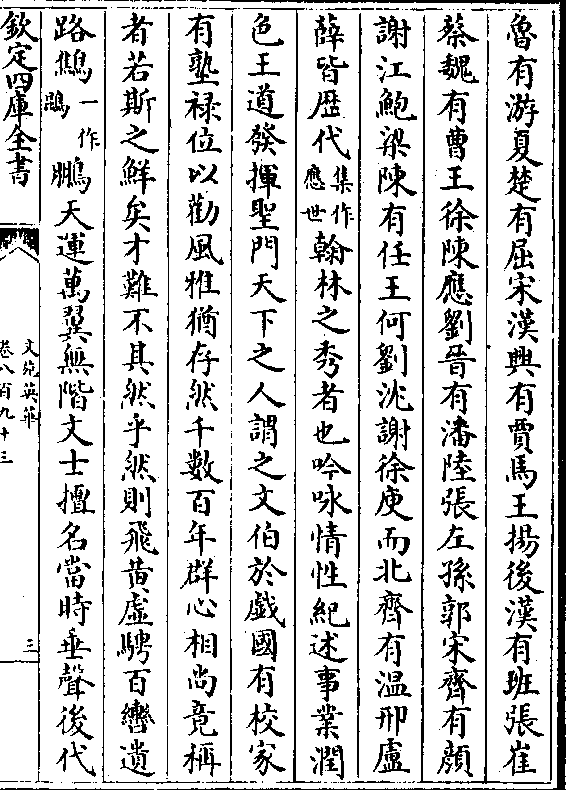 魯有游夏楚有屈宋漢興有賈馬王揚後漢有班張崔
蔡魏有曹王徐陳應劉晉有潘陸張左孫郭宋齊有顔
謝江鮑梁陳有任王何劉沈謝徐庾而北齊有溫邢盧
薛皆歴代集作應世翰林之秀者也吟咏情性紀述事業潤
色王道發揮聖門天下之人謂之文伯於戯國有校家
有塾禄位以勸風雅猶存然千數百年群心相尚竟稱
者若斯之鮮矣才難不其然乎然則飛黄虚騁百轡遺
路鷦一作鵾鵬天運萬翼無階文士擅名當時垂聲後代
欽定四庫全書
文苑英華
卷八百九十三
三